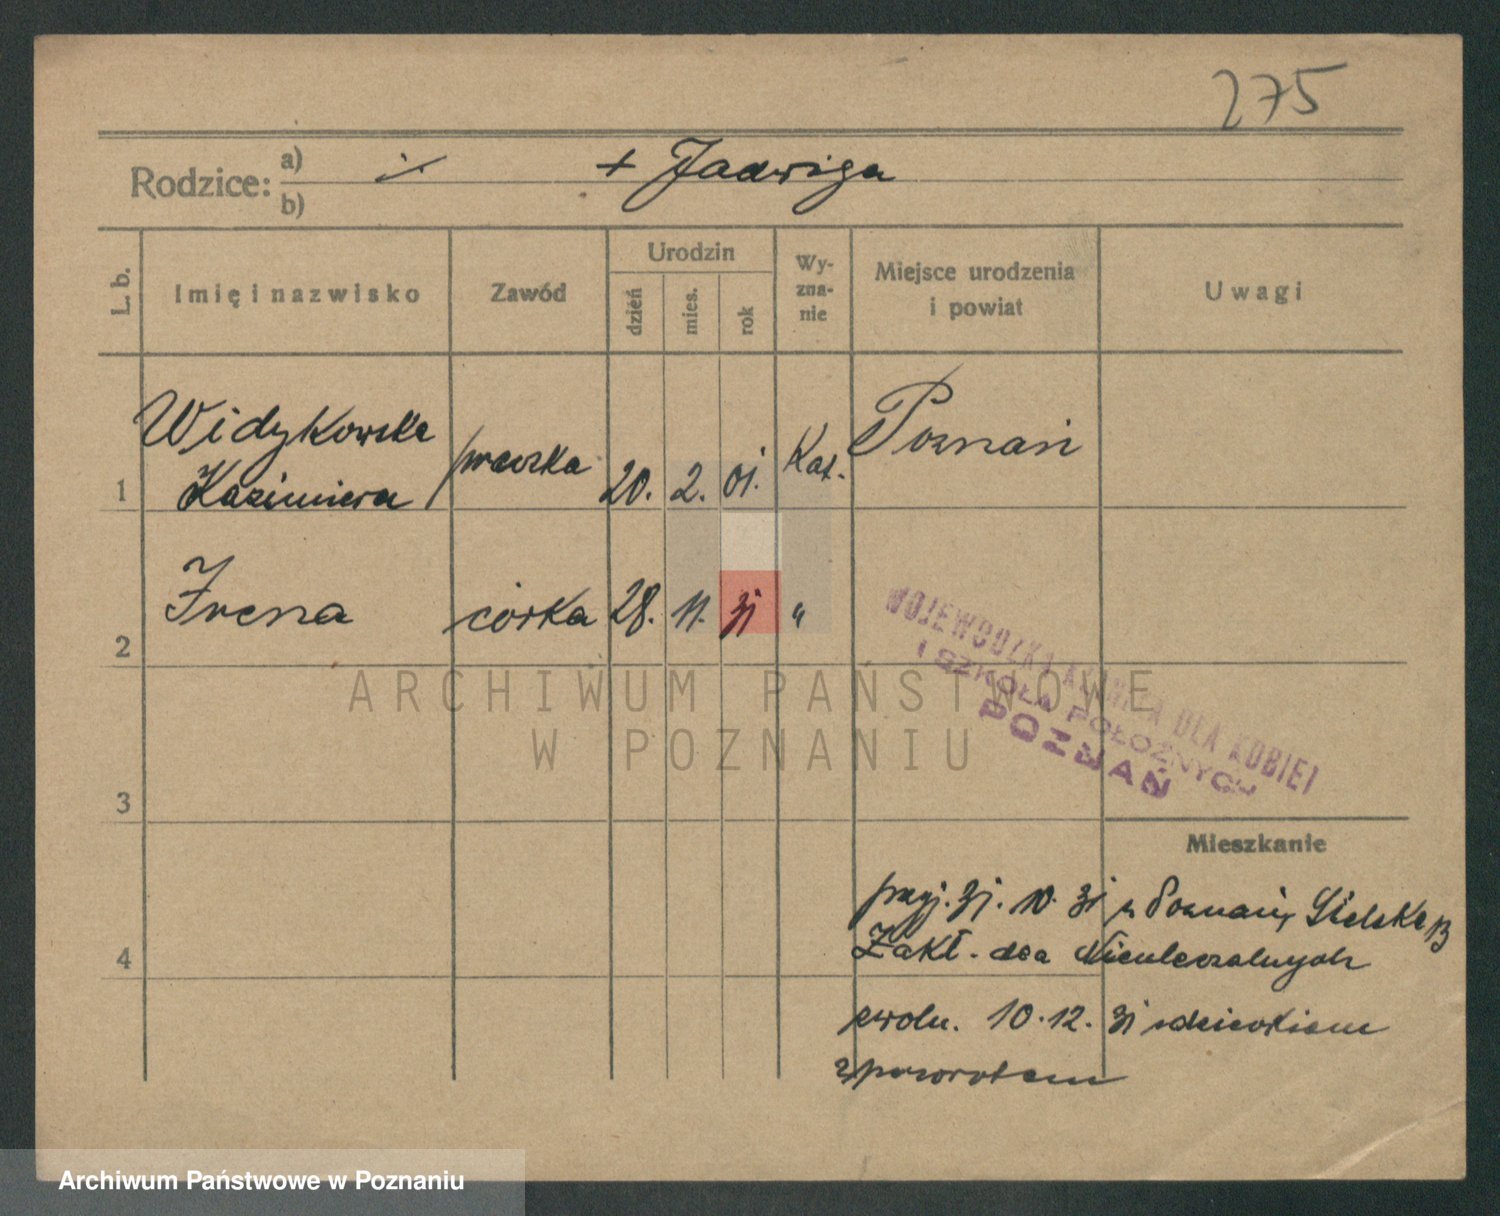 275
Rodzice: a) ·/. + Jadwiga
b)
L. b. Imię i nazwisko Zawód Urodzin dzień mies. rok Wy-zna-nie Miejsce urodzenia i powiat Uwagi
1 Widykowska Kazimiera praczka 20. 2. 01. Kat. Poznań
2 Irena córka 28. 11. 31 "
WOJEWÓDZKA KLINIKA DLA KOBIET
I SZKOŁA POŁOŻNYCH
POZNAŃ
ARCHIWUM PAŃSTWOWE
W POZNANIU
3
Mieszkanie
przyj. 31. 10. 31 z Poznania,
4 Zakł. dla Nieuleczalnych
zwoln. 10.12. 31 z dzieckiem
z powrotem
Archiwum Państwowe w Poznaniu